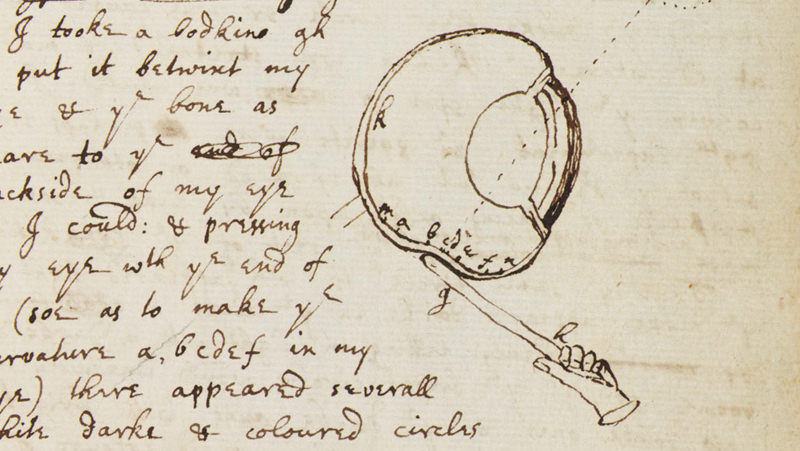 I tooke a bodkine gh
put it betwixt my
& yᵉ bone as
neare to yᵉ end of
backside of my eye
I could: & pressing
my eye wth yᵉ end of
(soe as to make yᵉ
curvature a, bcdef in my
eye) there appeared severall
white darke & coloured circles
k
m a b c d e f n
g
h